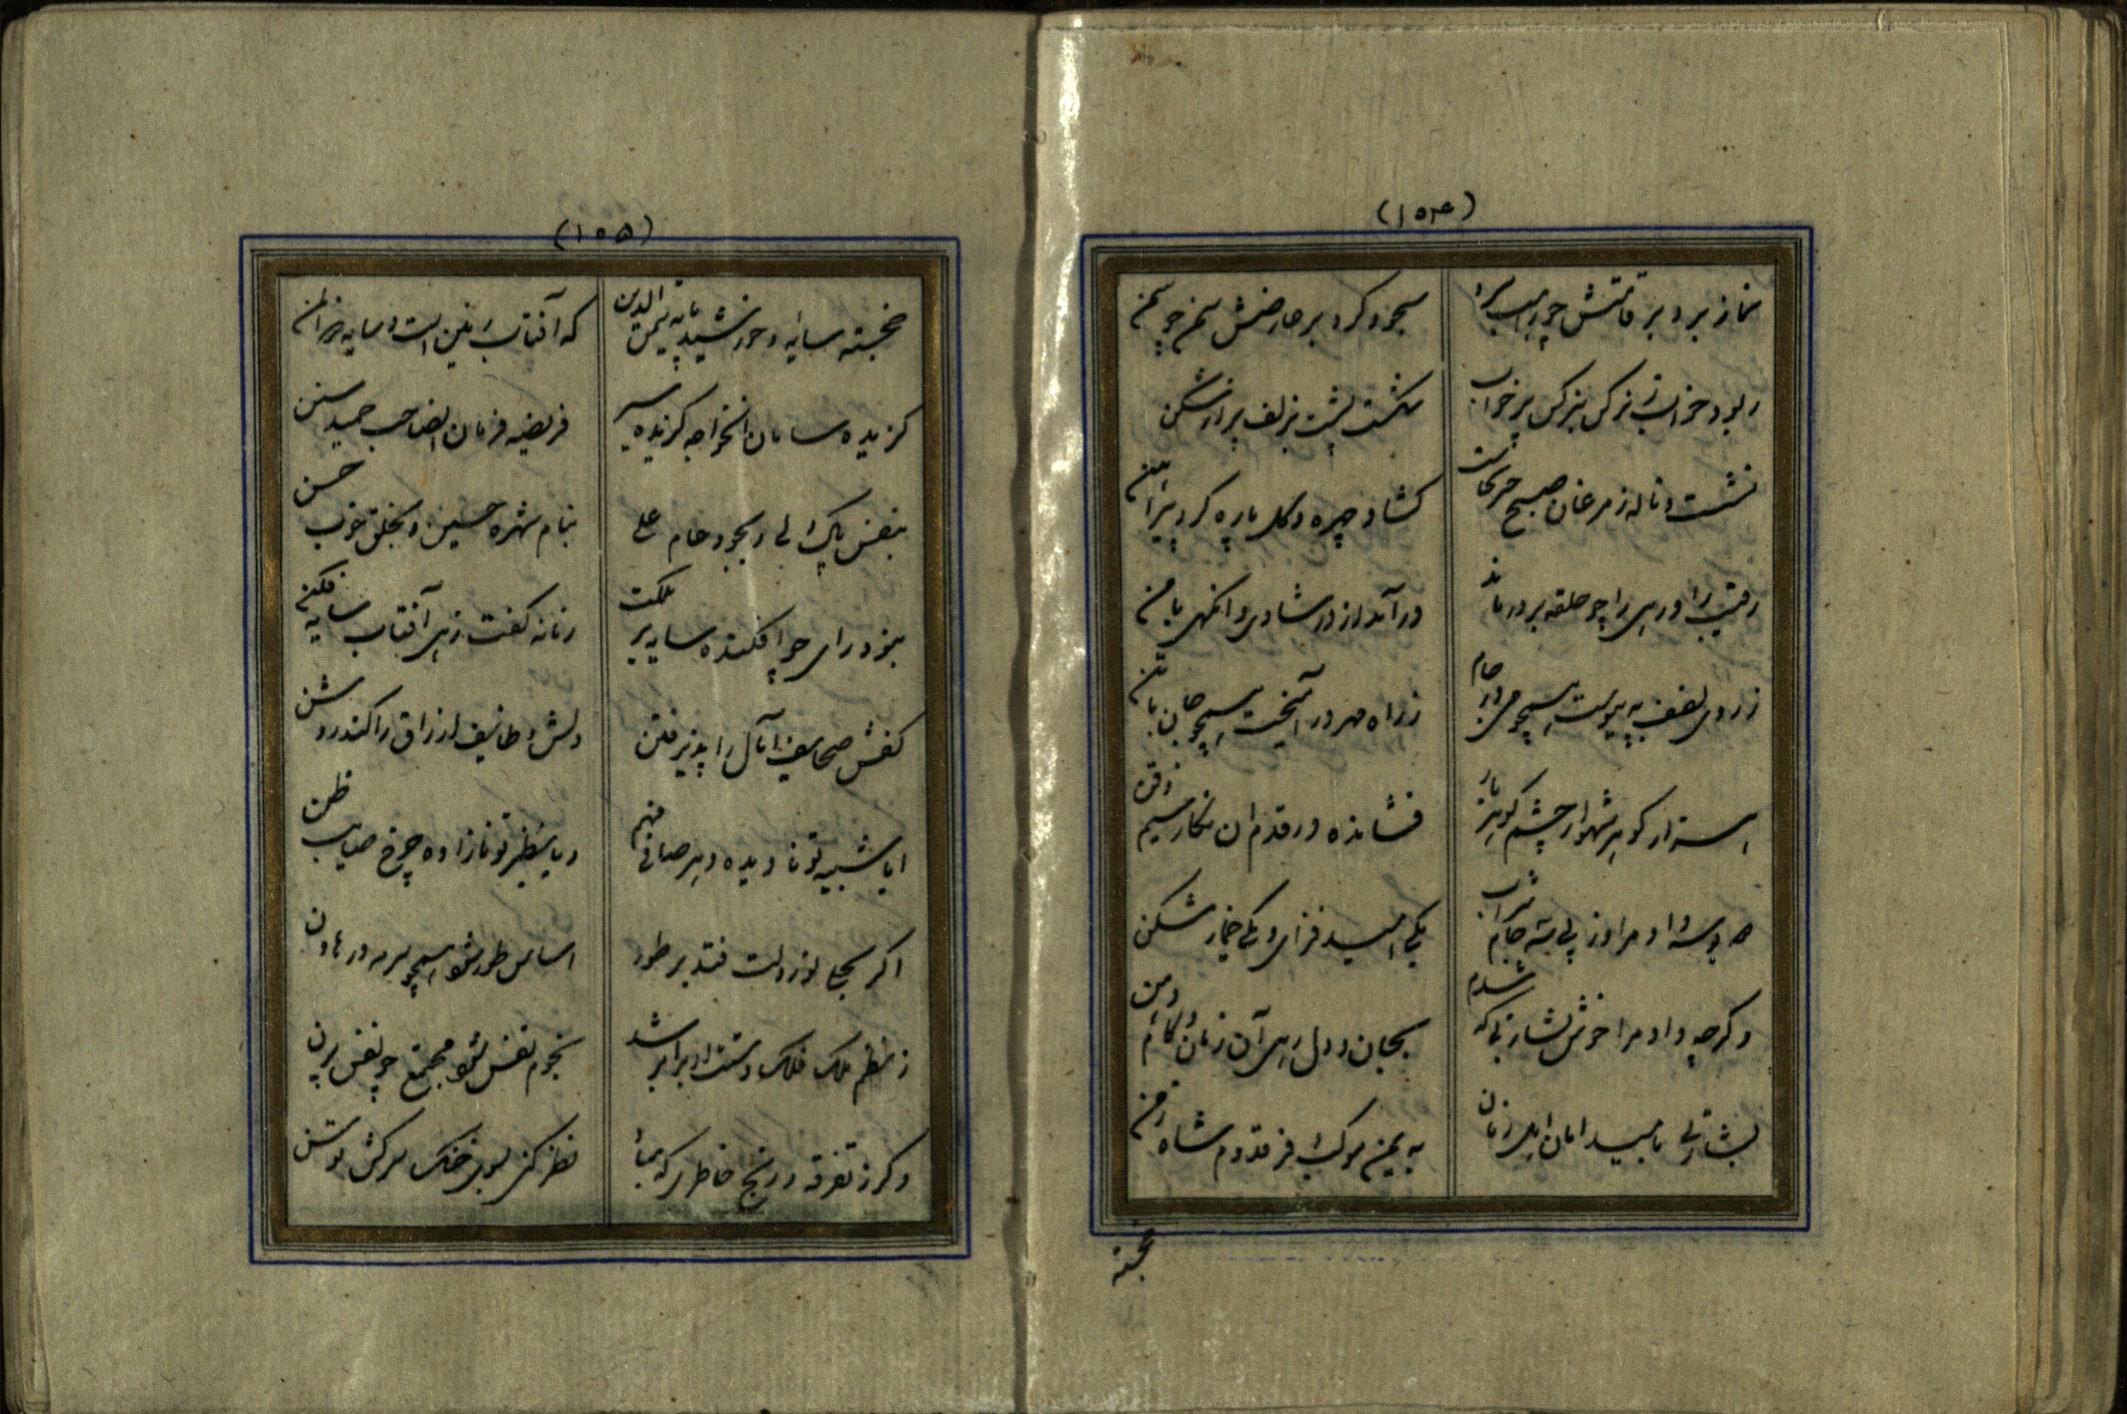 (۱۵۴)
نماز برد بر قامتش چو سرو
سجود کرد بر عارضش سمن چو سمن
ربود خواب ز نرگس بنرگس پرخواب
شکست پشت بزلف پر از شکن
نشست و ناله ز مرغان صبح خوان
گشاد چهره و گل پاره کرد پیراهن
رقیب را و رهی را چو حلقه بر در ماند
درآمد از در شادی و انگهی با من
ز روی لطف بپیوست همچو می در جام
ز راه مهر در آمیخت همچو جان با تن
هزار گوهر شهوار چشم گوهربار
فشانده در قدم ان نگار سیم ذقن
دو بوسه داد مرا وز پی سه جام شراب
یکی امید فزای و یکی خمار شکن
و گرچه داد مرا خوش بشارتی که شدم
بجان و دل رهی آن زمان و کام و دهن
بشارتی بامید امان اهل زمان
به یمن موکب فر قدوم شاه زمن
خجسته
(۱۵۵)
خجسته سایه و خورشید پایه شمس الدین
که آفتاب زمین است و سایه ذوالمن
گزیده سامان انخواجه گزیده سیر
فریضه فرمان الصاحب حمید سنن
بنفس پاک ولی و بجود عام علی
بنام شهره حسین و بخلق خوب حسن
بنور رای چو افکنده سایه بر ملکت
زمانه گفت زهی آفتاب سایه فکن
کفش صحایف آمال را پذیرفتن
دلش وظایف ارزاق را کند روشن
ایا شبیه تو نادیده دهر صافی فهم
ویا نظیر تو نازاده چرخ صایب ظن
اگر بجای نور دلت فتد بر طور
اساس طور شود همچو سرمه در هاون
ز نظم ملک فلک دستت ار برابر شد
نجوم نعش شود مجتمع چو نقش پرن
وگر ز تفرقه و رنج خاطری که بماند
نظر کنی بسوی خنگ سرکش توسن